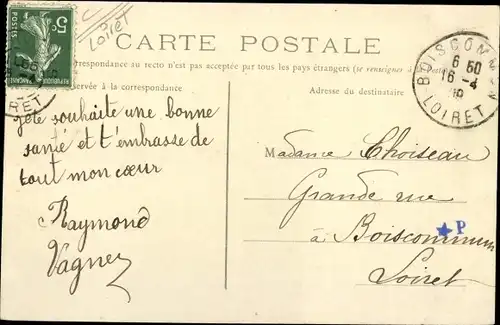 5c
REPUBLIQUE FRANÇAISE
POSTES
LOIRET
Loiret
CARTE POSTALE
La correspondance au recto n'est pas acceptée par tous les pays étrangers (se renseigner à la Poste)
réservée à la correspondance
Adresse du destinataire
BOISCOMMUN
6 50
16-4
LOIRET
Je te souhaite une bonne
santé et t'embrasse de
tout mon cœur
Raymond
Vagnez
Madame Choiseau
Grande rue
à Boiscommun
★ P
Loiret